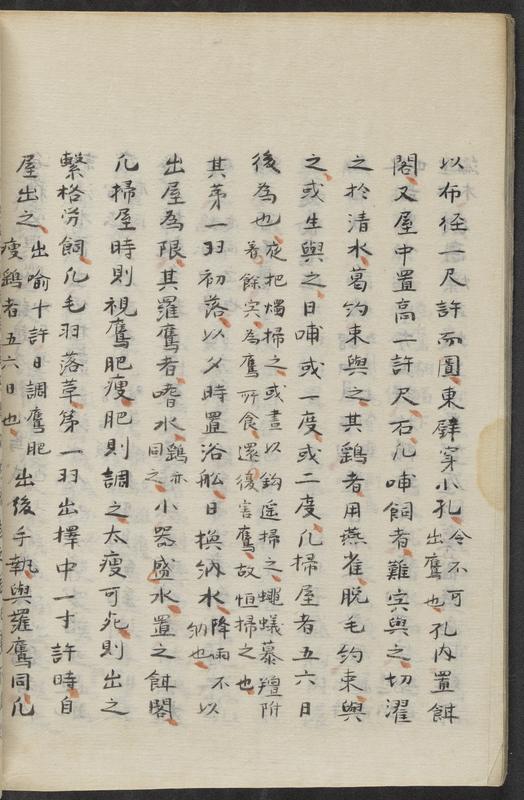 以布径一尺許而圓東壁穿小孔令不可出鷹也孔内置餌
閣又屋中置高一許尺石凢哺飼者難宍與之切濯
之於清水葛約束與之其鷂者用燕雀脱毛約束與
之或生與之日哺或一度或二度凢掃屋者五六日
後為也夜把燭掃之或晝以鈎遥掃之蠅蟻慕羶附着餘宍為鷹所食還復害鷹故恒掃之也
其第一羽初落以夕時置浴船日換納水降雨不以納也
出屋為限其羅鷹者嗜水鷂亦同之小器盛水置之餌閣
凢掃屋時則視鷹肥瘦肥則調之太瘦可死則出之
繫格労飼凢毛羽落草第一羽出擇中一寸許時自
屋出之出喻十許日調鷹肥瘦鷂者五六日也出後手執與羅鷹同凢